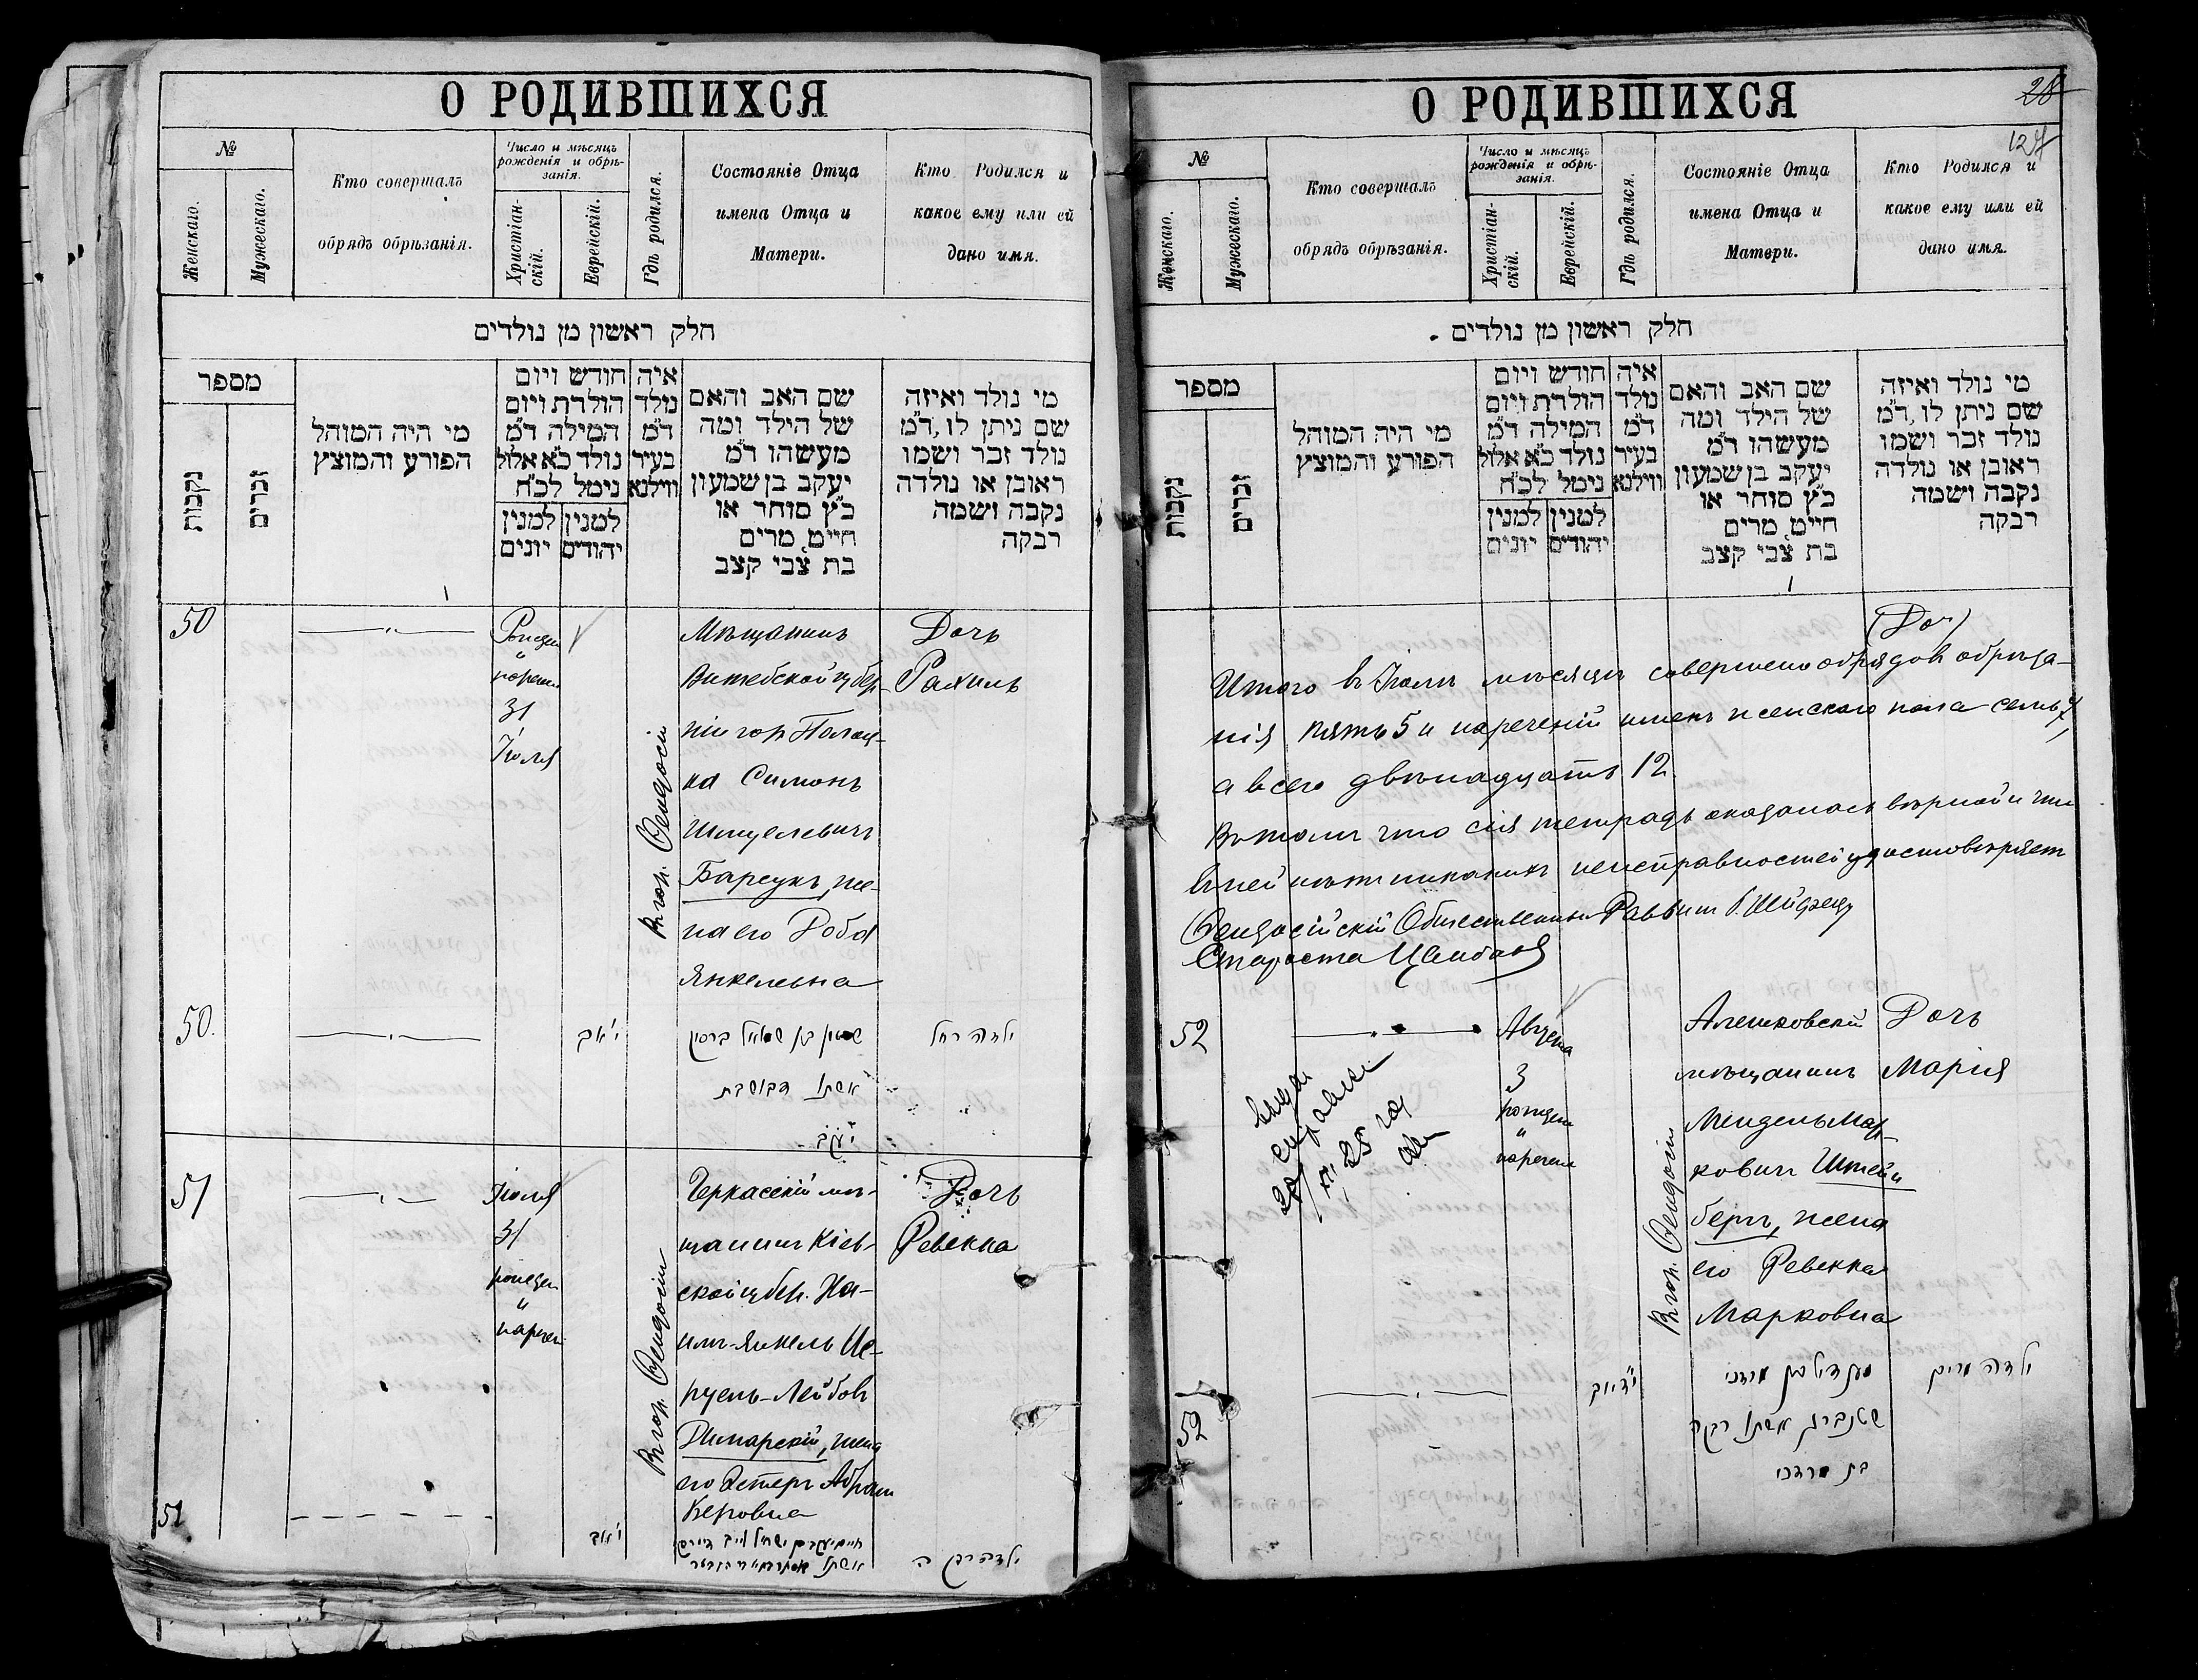 О РОДИВШИХСЯ
№
Женскаго.
Мужескаго.
Кто совершалъ
обрядъ обрѣзанія.
Число и мѣсяцъ
рожденія и обрѣ-
занія.
Христіан-
скій.
Еврейскій.
Гдѣ родился.
Состояніе Отца
имена Отца и
Матери.
Кто Родился и
какое ему или ей
дано имя.
חלק ראשון מן נולדים
מספר
נקבות
זכרים
מי היה המוהל
הפורע והמוצץ
חודש ויום
הולדת ויום
המילה ד״מ
נולד כ״א אלול
נימל לכ״ח
למנין יהודים
למנין יונים
איה
נולד
ד״מ
בעיר
ווילנא
שם האב והאם
של הילד ומה
מעשהו ד״מ
יעקב בן שמעון
כ״ץ סוחר או
חייט, מרים
בת צבי קצב
מי נולד ואיזה
שם ניתן לו, ד״מ
נולד זכר ושמו
ראובן או נולדה
נקבה ושמה
רבקה
50
Рожден
"
наречен
31
Іюля
В гор. Ѳеодосіи
Мѣщанинъ
Витебской губер-
ніи гор. Полоц-
ка Симонъ
Шмуелевичъ
Барсукъ, же-
на его Доба
Янкелевна
Дочь
Рахиль
50.
י׳ אב
אשתו
יעקב
ילדה רחל
51
Іюля
31
рожден
"
наречен
В гор. Ѳеодосіи
Черкасскій мѣ-
щанинъ Кіев-
ской губер. Ха-
имъ-Янкель Из-
руель-Лейбовъ
Димарскій, жена
его Эстеръ Абрам
Беровна
Дочь
Ревекка
51
י׳ אב
ילדה רבקה
О РОДИВШИХСЯ
28
127
№
Женскаго.
Мужескаго.
Кто совершалъ
обрядъ обрѣзанія.
Число и мѣсяцъ
рожденія и обрѣ-
занія.
Христіан-
скій.
Еврейскій.
Гдѣ родился.
Состояніе Отца
имена Отца и
Матери.
Кто Родился и
какое ему или ей
дано имя.
חלק ראשון מן נולדים
מספר
נקבות
זכרים
מי היה המוהל
הפורע והמוצץ
חודש ויום
הולדת ויום
המילה ד״מ
נולד כ״א אלול
נימל לכ״ח
למנין יהודים
למנין יונים
איה
נולד
ד״מ
בעיר
ווילנא
שם האב והאם
של הילד ומה
מעשהו ד״מ
יעקב בן שמעון
כ״ץ סוחר או
חייט, מרים
בת צבי קצב
מי נולד ואיזה
שם ניתן לו, ד״מ
נולד זכר ושמו
ראובן או נולדה
נקבה ושמה
רבקה
(Доч)
Итого въ Іюлѣ мѣсяцѣ совершено обрядовъ обрѣза-
нія пять 5 и нареченій именъ женскаго пола семь 7,
а всего двѣнадцать 12.
Въ томъ что сія тетрадь оказалась вѣрной и что
въ ней нѣтъ никакихъ неисправностей удостовѣряетъ
Ѳеодосійскій Общественный Раввинъ
Староста
52
Августа
3
рожден
"
наречен
В гор. Ѳеодосіи
Алешковскій
мѣщанинъ
Мендель Мар-
ковичъ Штейн
бергъ, жена
его Ревекка
Марковна
Дочь
Марія
52
מענדיל בן מרדכי
שטנברג אשתו רבקה
בת מרדכי
ילדה מרים